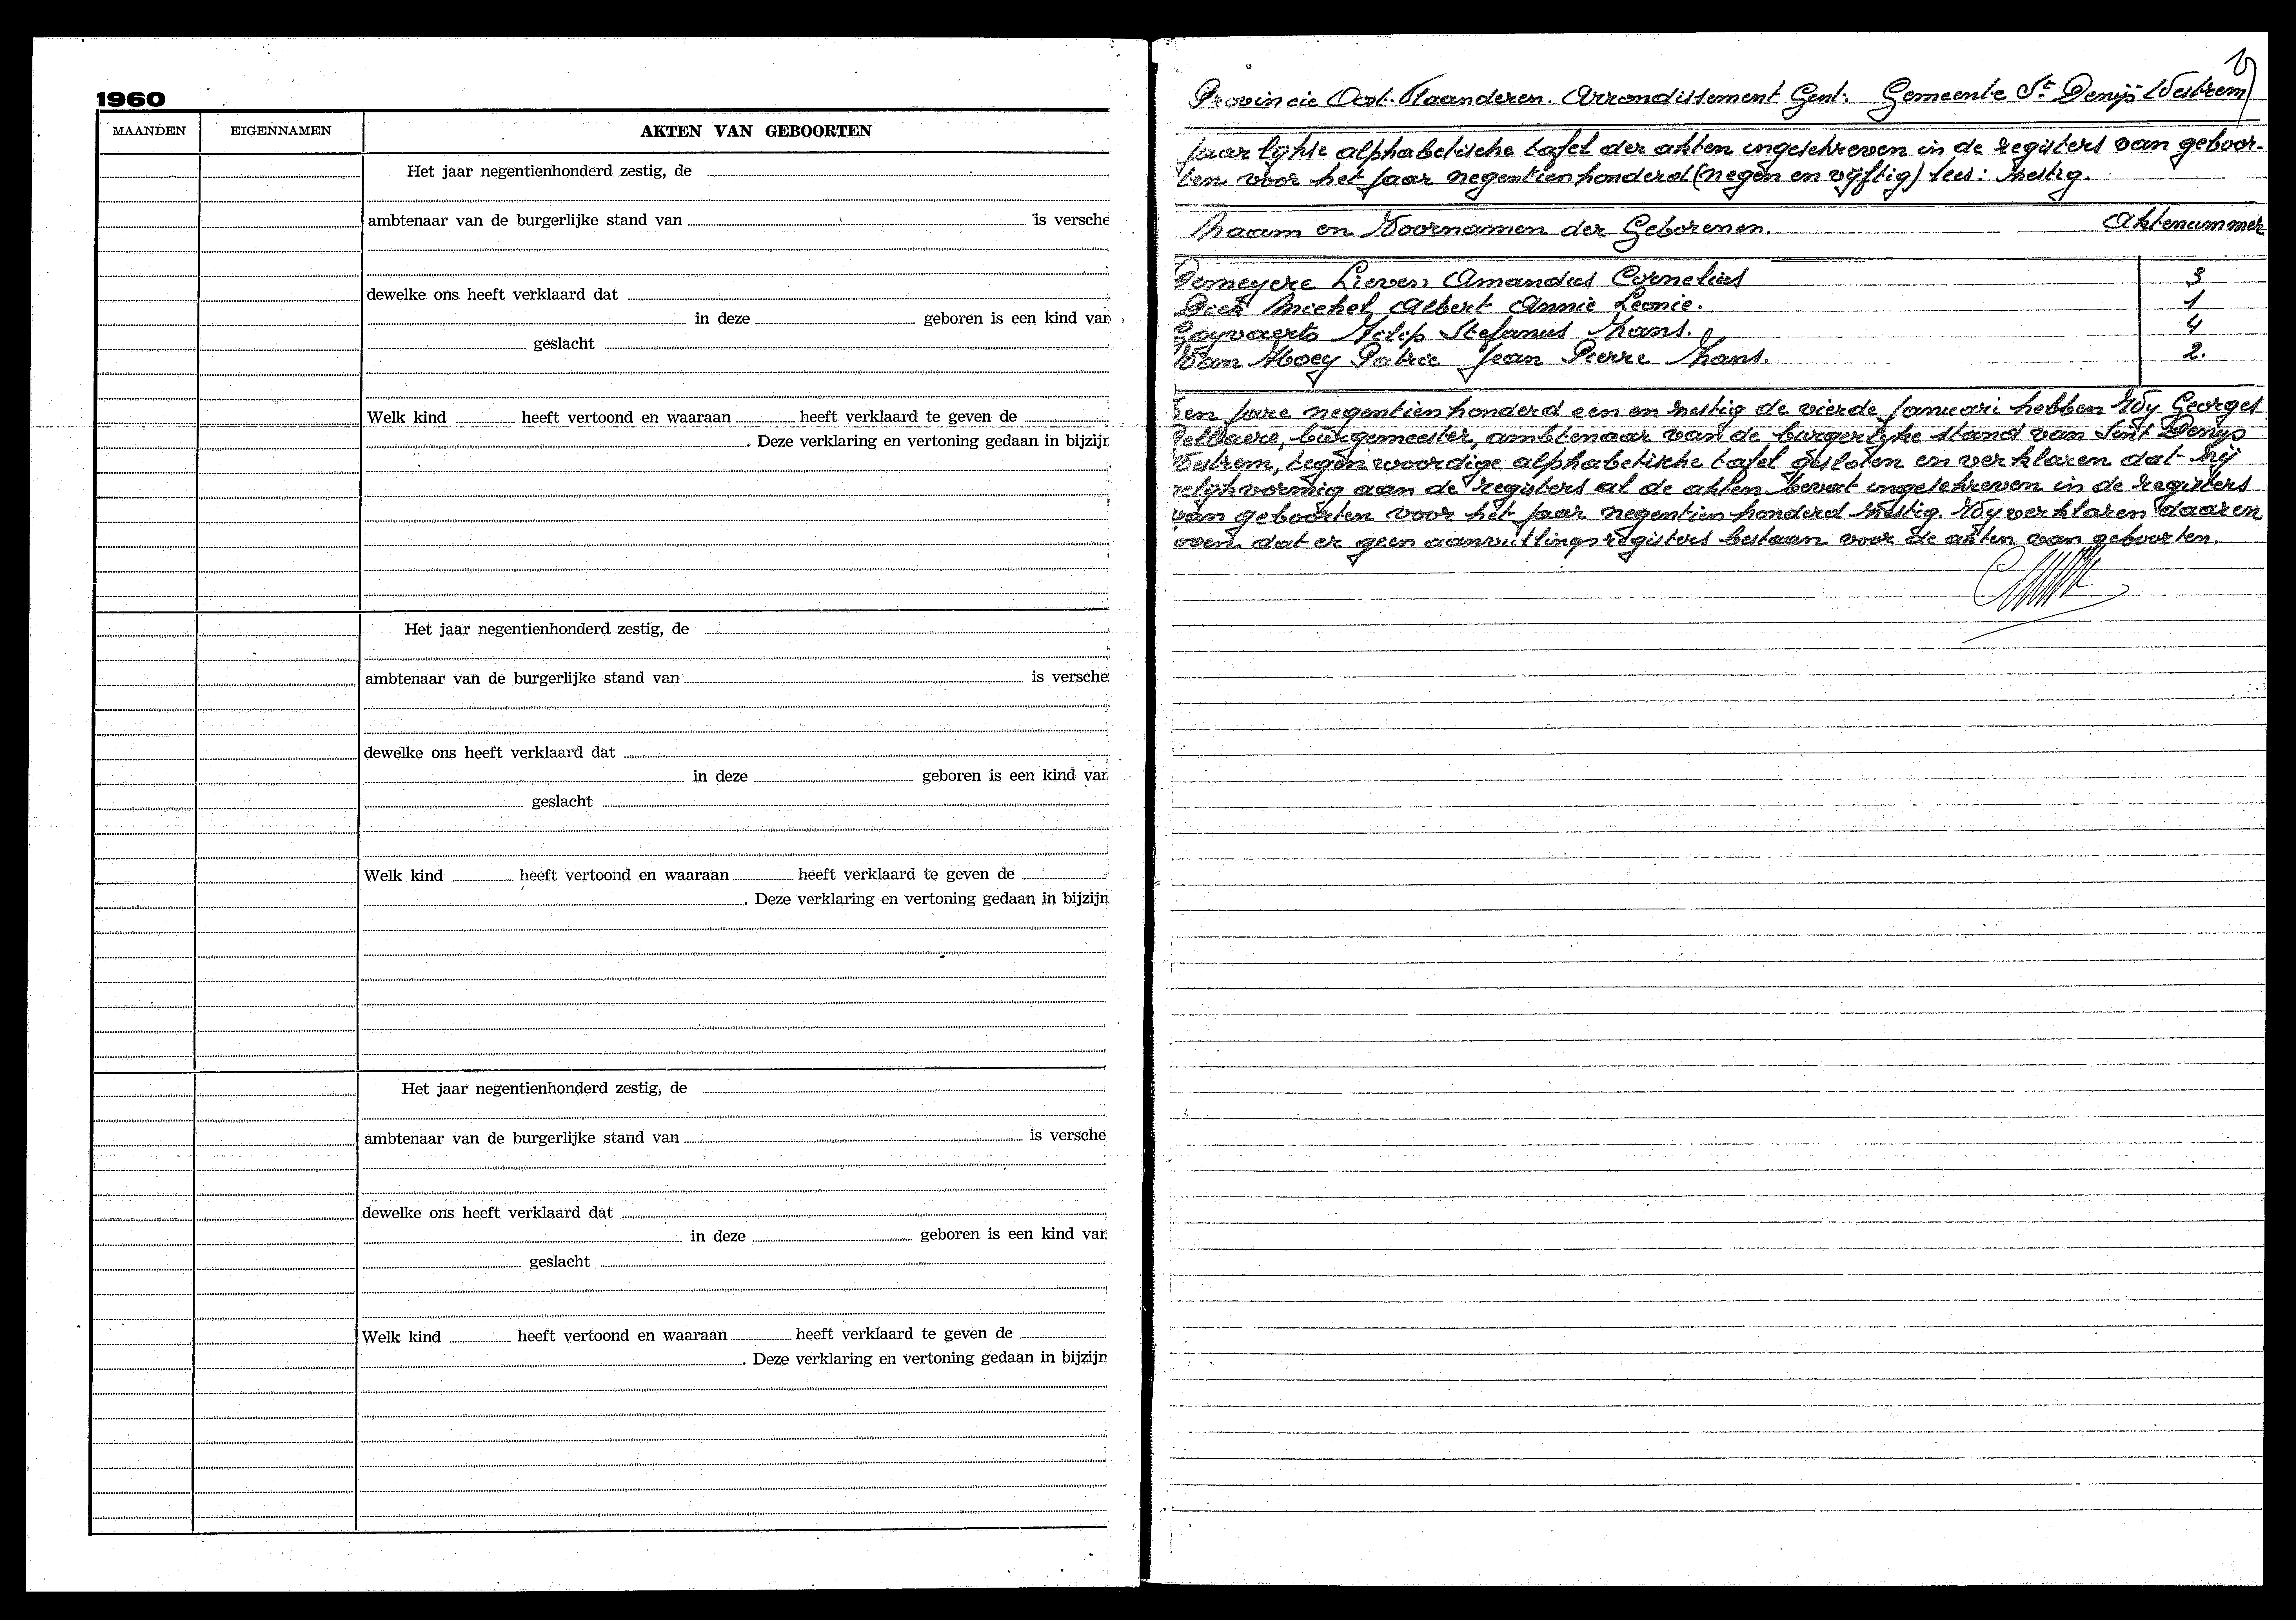 1960
MAANDEN EIGENNAMEN AKTEN VAN GEBOORTEN
Het jaar negentienhonderd zestig, de
ambtenaar van de burgerlijke stand van is versche
dewelke ons heeft verklaard dat
in deze geboren is een kind van
geslacht
Welk kind heeft vertoond en waaraan heeft verklaard te geven de
. Deze verklaring en vertoning gedaan in bijzijn
Het jaar negentienhonderd zestig, de
ambtenaar van de burgerlijke stand van is versche
dewelke ons heeft verklaard dat
in deze geboren is een kind van
geslacht
Welk kind heeft vertoond en waaraan heeft verklaard te geven de
. Deze verklaring en vertoning gedaan in bijzijn
Het jaar negentienhonderd zestig, de
ambtenaar van de burgerlijke stand van is versche
dewelke ons heeft verklaard dat
in deze geboren is een kind van
geslacht
Welk kind heeft vertoond en waaraan heeft verklaard te geven de
. Deze verklaring en vertoning gedaan in bijzijn
Provincie Oost-Vlaanderen. Arrondissement Gent. Gemeente St Denijs Westrem
Jaarlijkse alphabetische tafel der akten ingeschreven in de registers van geboor-
ten voor het jaar negentienhonderd (negen en vijftig) lees: zestig.
Naam en Voornamen der Geborenen. Aktenummer
Demeyere Lieven Amandus Cornelius 3
Michel Albert Annie Leonie. 1
Goyvaerts Filip Stefanus Frans. 4
Van Hoey Patric Jean Pierre Frans. 2.
Ten jare negentienhonderd een en zestig de vierde januari hebben Wij Georges
burgemeester, ambtenaar van de burgerlijke stand van Sint Denijs
Westrem, tegenwoordige alphabetische tafel gesloten en verklaren dat zij
gelijkvormig aan de registers al de akten bevat ingeschreven in de registers
van geboorten voor het jaar negentienhonderd zestig. Wij verklaren daaren
boven dat er geen aanvullingsregisters bestaan voor de akten van geboorten.